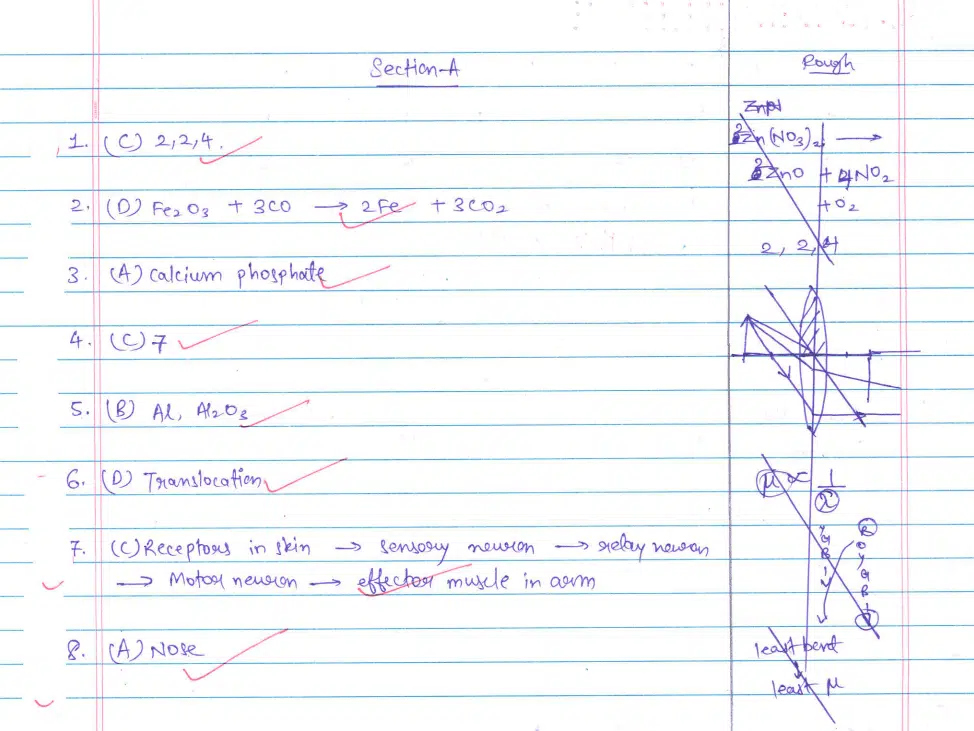 Section-A
Rough
1. (C) 2,2,4.
2. (D) Fe₂O₃ + 3CO → 2Fe + 3CO₂
3. (A) Calcium phosphate
4. (C) 7
5. (B) Al, Al₂O₃
6. (D) Translocation
7. (C) Receptors in skin → sensory neuron → relay neuron
→ Motor neuron → effector muscle in arm
8. (A) Nose
2Zn(NO₃)₂ →
2ZnO + 4NO₂
+ O₂
2, 2, 4
μ ∝ 1/λ
R
O
Y
G
B
I
V
least bent
least μ